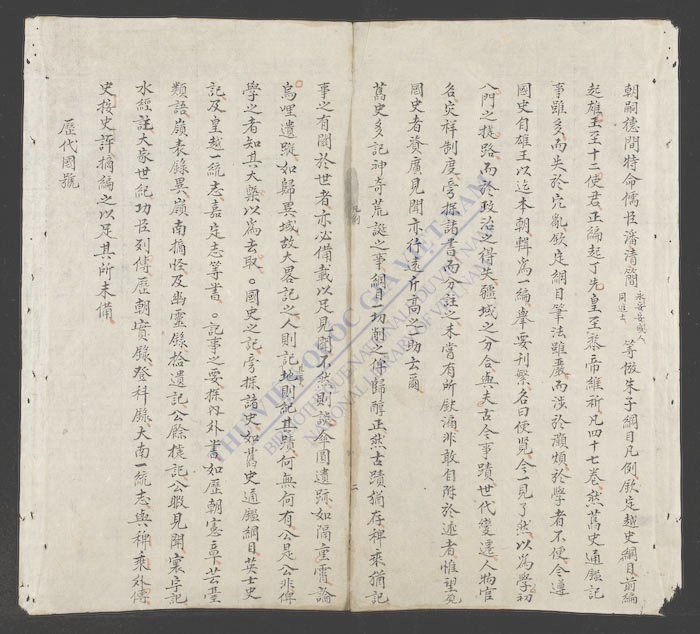 朝嗣德間特命儒臣潘清簡永安安城人同進士等倣朱子綱目凡例欽定越史綱目前編
起雄王至十二使君正編起丁先皇至黎帝維祈凡四十七卷然舊史通鑑記
事雖多而失於冗亂欽定綱目筆法雖嚴而涉於瀕煩於學者不便今遵
國史自雄王以迄本朝輯為一編舉要刊繁名曰便覽令一見了然以為學初
入門之捷路而於政治之得失疆域之分合與夫古今事蹟世代變遷人物官
名災祥制度旁採諸書而分註之未嘗有所欽漏非敢自附於述者惟望覽
國史者資廣見聞亦行遠升高之一助云爾
舊史多記神奇荒誕之事綱目一切削之俾歸醇正然古蹟猶存稗乘猶記
事之有關於世者亦必備載以足見聞不然則繖傘圓遺跡如隔重霄論
烏哩遺蹤如歸異域故大畧記之人則記地則紀其蹟何無何有公是公非俾
學之者知其大槩以為去取。國史之記旁採諸史如舊史通鑑綱目英士史
記及皇越一統志嘉定志等書。記事之要採外書如歷朝憲章芸臺
類語嶺表錄異嶺南摘怪及幽靈錄拾遺記公餘捷記公暇見聞寰宇記
水經註大家世紀功臣列傳歷朝實錄登科錄大南一統志與稗乘外傳
史按史評摘編之以足其所未備
歷代國號
凡例
二
THƯ VIỆN QUỐC GIA VIỆT NAM
BIBLIOTHÈQUE NATIONALE DU VIETNAM
NATIONAL LIBRARY OF VIETNAM